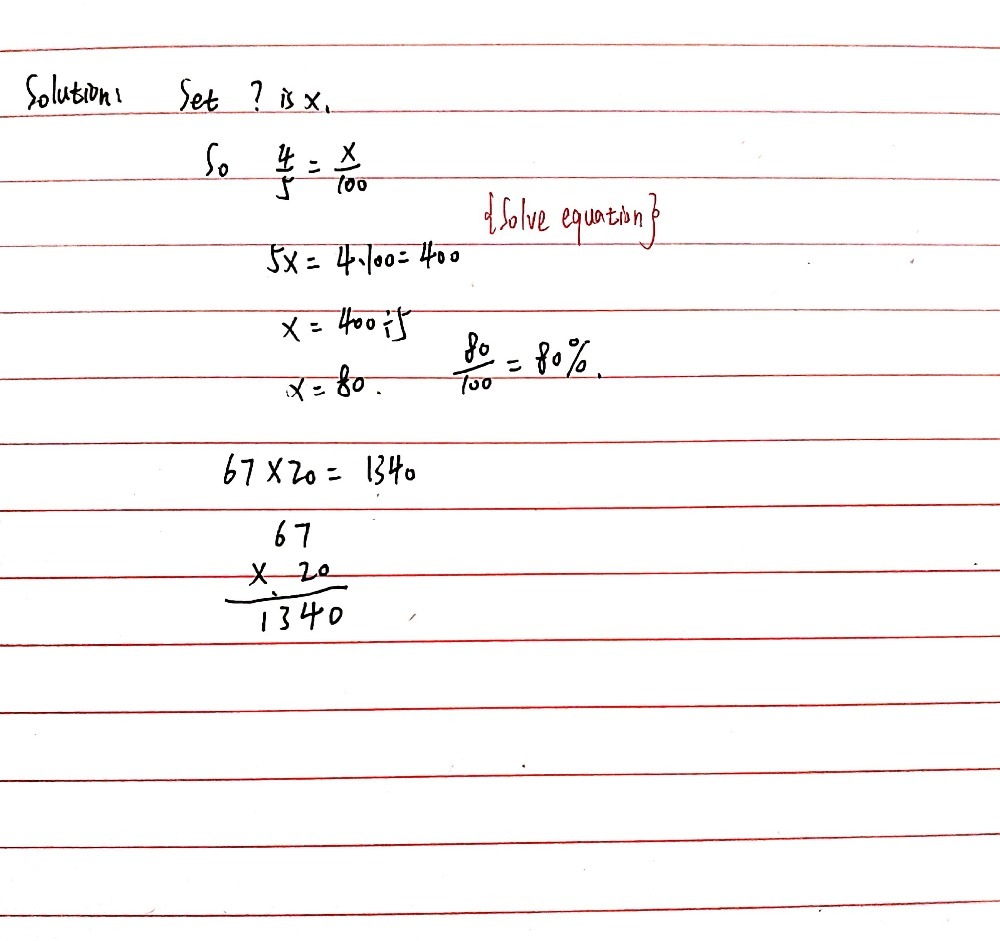 Solution: Set ? is x.
So 4/5 = x/100
{Solve equation}
5x = 4·100 = 400
x = 400÷5
x = 80. 80/100 = 80%.
67 × 20 = 1340
67
× 20
1340